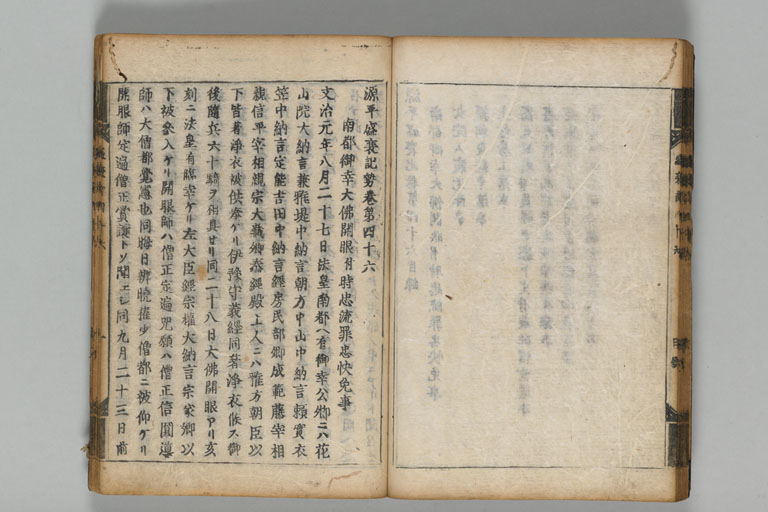 源平盛衰記勢巻第四十六
南都御幸大佛開眼幷時忠流罪忠快免事
文治元年八月二十七日法皇南都ヘ有御幸公卿ニハ花
山院大納言兼雅堤中納言朝方中山中納言頼實衣
笠中納言定能吉田中納言經房民部卿成範藤宰相
親信平宰相親宗大藏卿泰經殿上人ニハ雅方朝臣以
下皆着淨衣被供奉ケリ伊豫守義經同著淨衣候ス御
後隨兵六十騎ヲ相具セリ同二十八日大佛開眼アリ亥
刻ニ法皇有臨幸ケリ左大臣經宗權大納言宗家卿以
下被參入ケリ開眼師ハ僧正定遍咒願ハ僧正信圓導
師ハ大僧都覺憲也同晦日辨曉權少僧都ニ被仰ケリ
開眼師定遍僧正賞讓トソ聞エシ同九月二十三日前